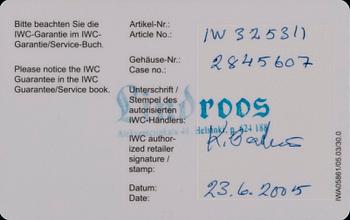 Bitte beachten Sie die
IWC-Garantie im IWC-
Garantie/Service-Buch.
Please notice the IWC
Guarantee in the IWC
Guarantee/Service book.
Artikel-Nr.:
Article No.:
IW 325311
Gehäuse-Nr.:
Case no.:
2845607
Unterschrift /
Stempel des
autorisierten
IWC-Händlers:
roos
Helsinki, p. 624 188
IWC author-
ized retailer
signature /
stamp:
Datum:
Date:
23.6.2005
IWA05861/05.03/30.0